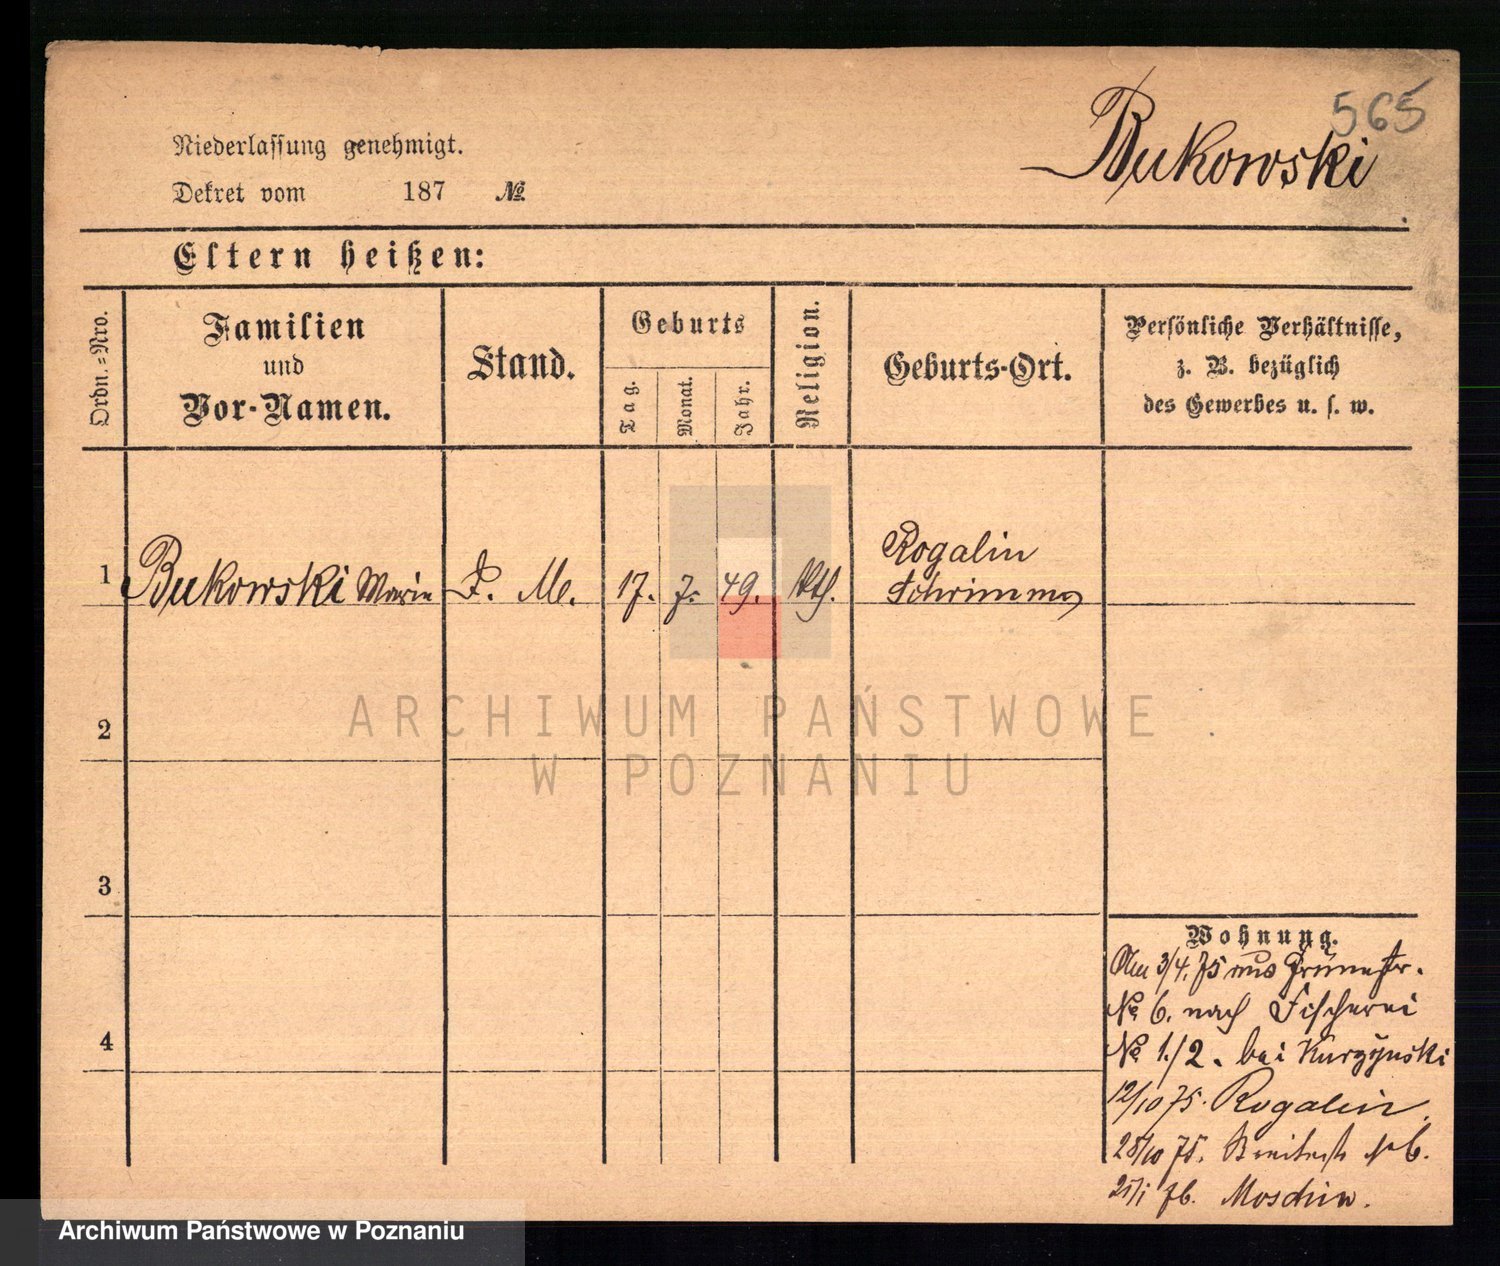 565
Bukowski
Niederlassung genehmigt.
Dekret vom 187 №
Eltern heißen:
Ordn.-Nro.
Familien
und
Vor-Namen.
Stand.
Geburts
Tag.
Monat.
Jahr.
Religion.
Geburts-Ort.
Persönliche Verhältnisse,
z. B. bezüglich
des Gewerbes u. s. w.
1 Bukowski Marie D. M. 17. 7. 49. kth. Rogalin
Schrimm
2
3
4
Wohnung.
Am 3/4. 75 aus Grünestr.
№ 6. nach Fischerei
№ 1./2. bei Kurzynski
12/10 75. Rogalin.
25/10 75. Breitestr 6.
25/1 76. Moschin.
ARCHIWUM PAŃSTWOWE
W POZNANIU
Archiwum Państwowe w Poznaniu